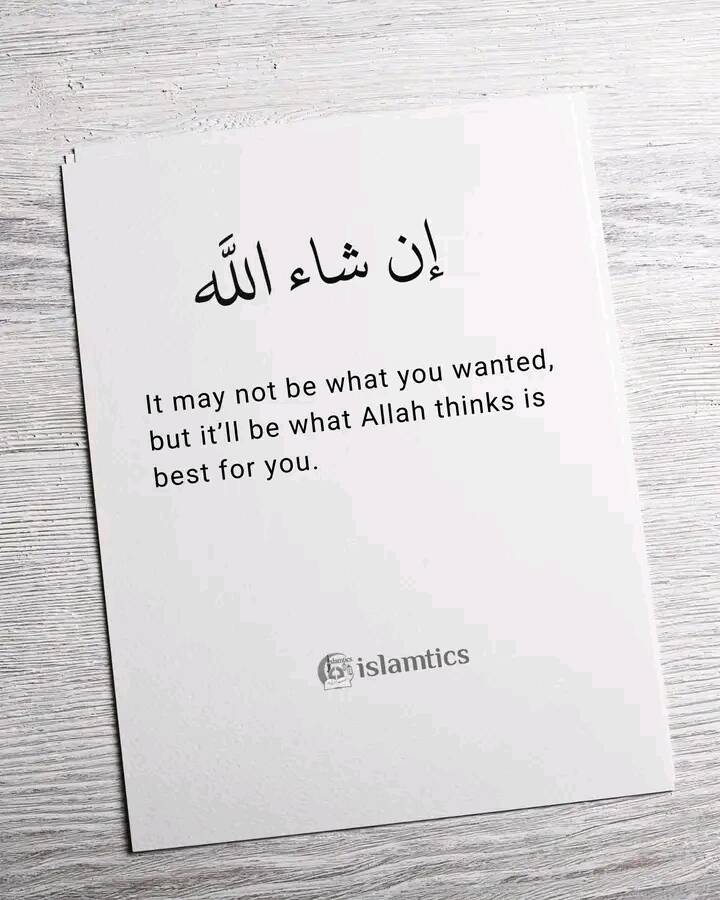 إن شاء اللَّه
It may not be what you wanted,
but it’ll be what Allah thinks is
best for you.
islamtics